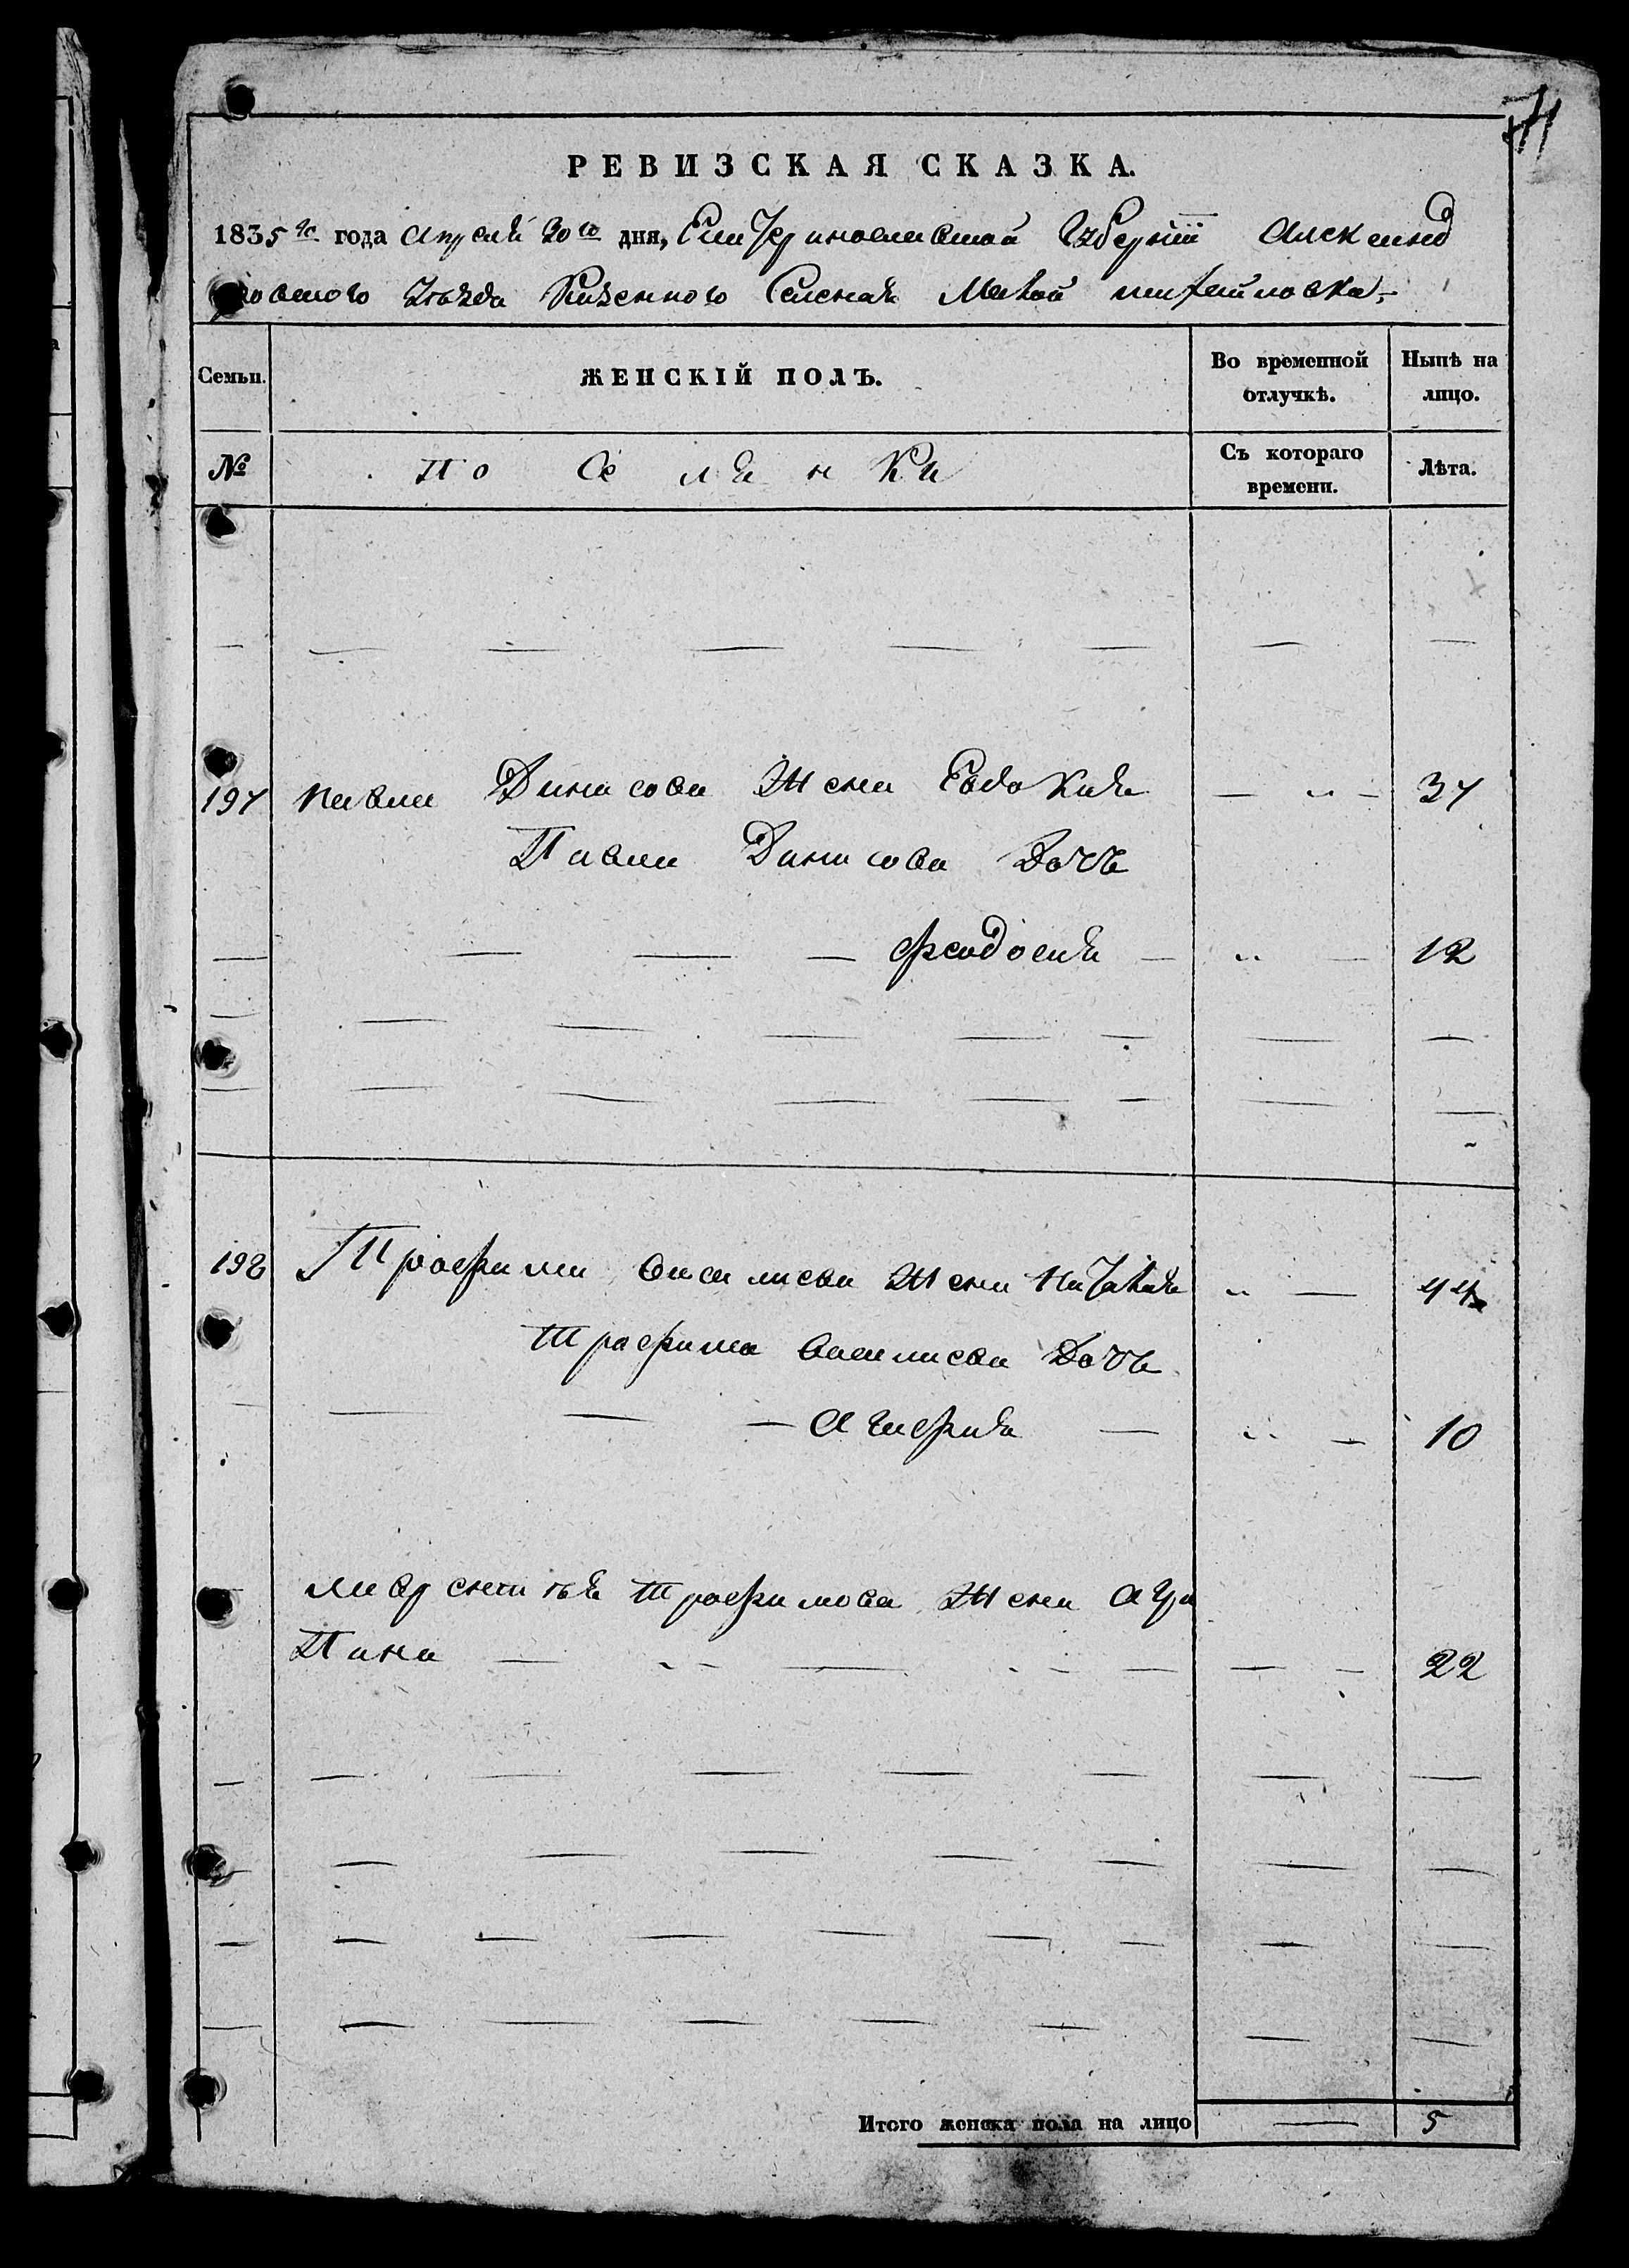 71
РЕВИЗСКАЯ СКАЗКА.
1835 го года Апреля 20 го дня, Екатеринославской Губерніи Александ
ровского Уѣзда Казенного Селения Малой михайловка
Семьи. ЖЕНСКІЙ ПОЛЪ. Во временной отлучкѣ. Нынѣ на лицо.
№ Поселянки Съ котораго времени. Лѣта.
197 павла Динисова Жена Евдокия — " — 37
Павла Динисова Дочь
— — — — Феодосия — " — 12
198 Трофима василиева Жена Наталия " — 44
Трофима василиева Дочь
— — — Агафия — " — 10
лаврентия Трофимова Жена Агри
Пина — " — — " — — — — 22
Итого женска пола на лицо — 5